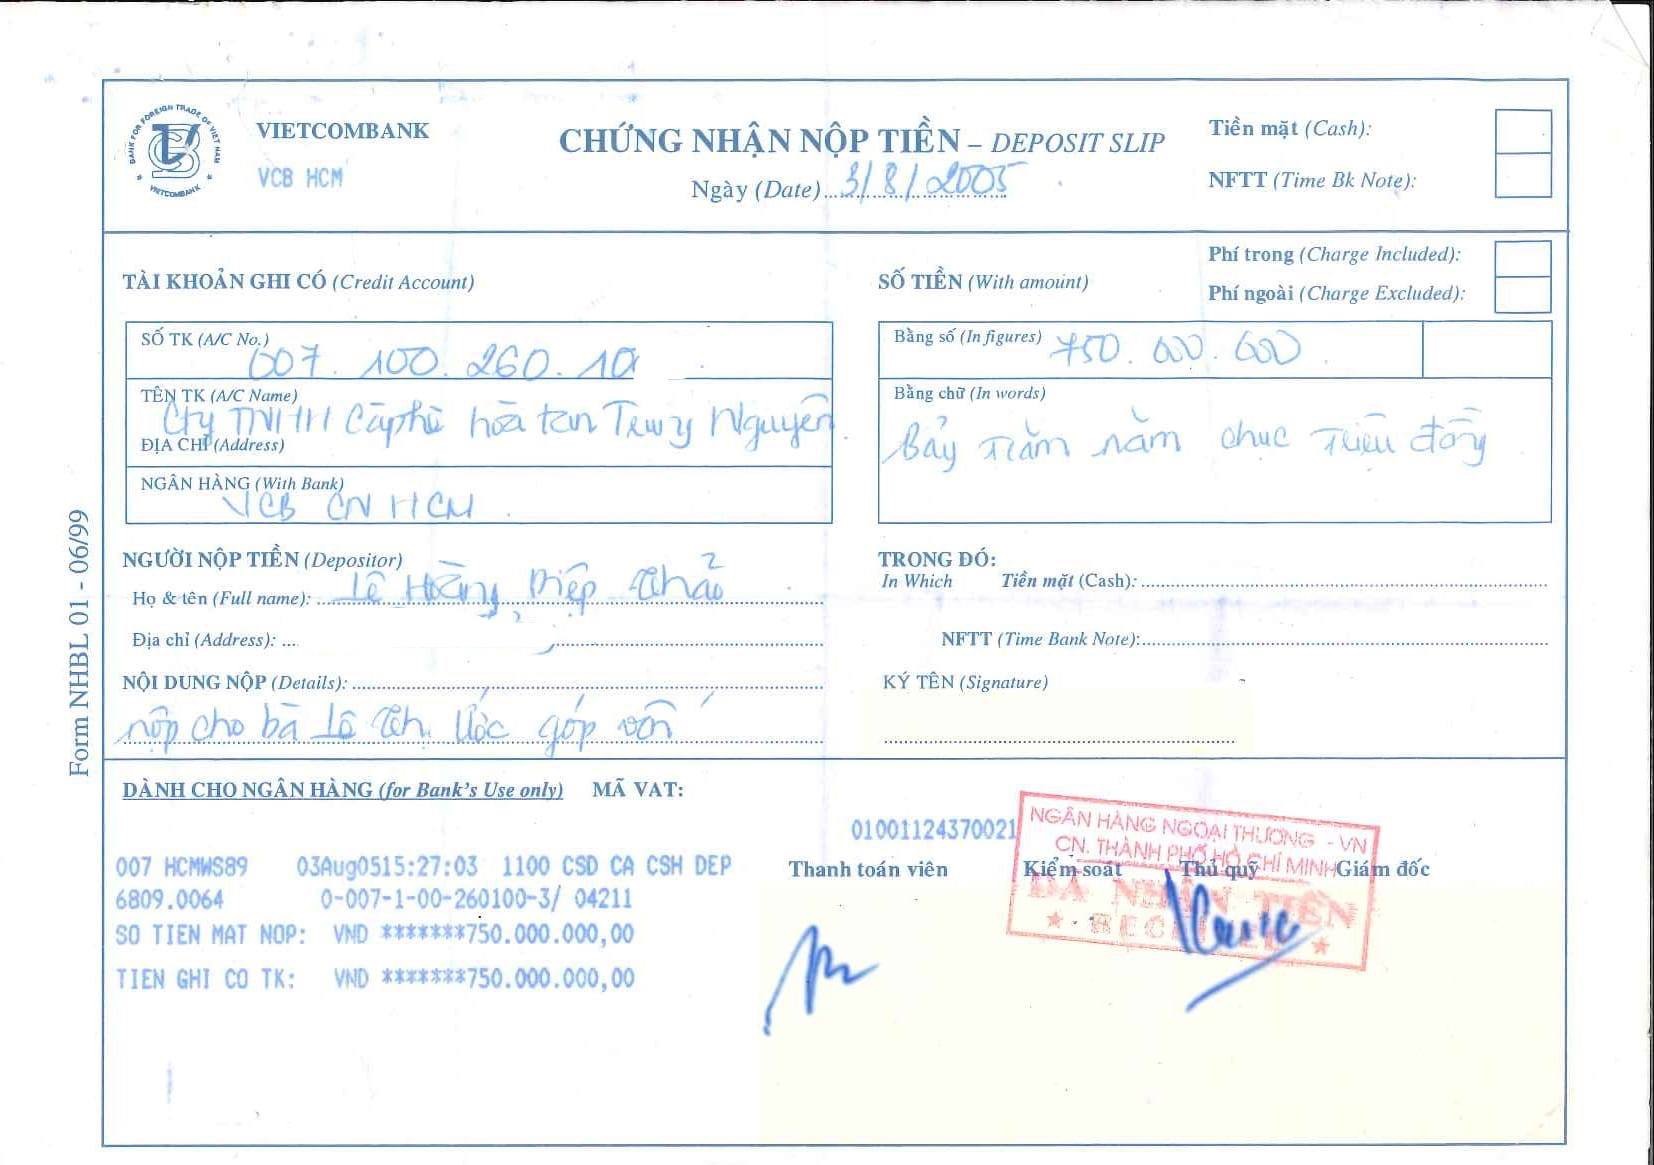 BANK FOR FOREIGN TRADE OF VIET NAM
VIETCOMBANK
VIETCOMBANK
VCB HCM
CHỨNG NHẬN NỘP TIỀN – DEPOSIT SLIP
Ngày (Date) 3/8/2005
Tiền mặt (Cash):
NFTT (Time Bk Note):
TÀI KHOẢN GHI CÓ (Credit Account)
SỐ TIỀN (With amount)
Phí trong (Charge Included):
Phí ngoài (Charge Excluded):
SỐ TK (A/C No.)
007.100.260.10
TÊN TK (A/C Name)
Cty TNHH Càphê hòa tan Trung Nguyên
ĐỊA CHỈ (Address)
NGÂN HÀNG (With Bank)
VCB CN HCM
Bằng số (In figures) 750.000.000
Bằng chữ (In words)
Bảy trăm năm chục triệu đồng
NGƯỜI NỘP TIỀN (Depositor)
Họ & tên (Full name): Lê Hoàng Diệp Thảo
Địa chỉ (Address):
NỘI DUNG NỘP (Details):
nộp cho bà Lê Thị Ước góp vốn
TRONG ĐÓ:
In Which Tiền mặt (Cash):
NFTT (Time Bank Note):
KÝ TÊN (Signature)
Form NHBL 01 - 06/99
DÀNH CHO NGÂN HÀNG (for Bank's Use only) MÃ VAT:
01001124370021
007 HCMWS89 03Aug0515:27:03 1100 CSD CA CSH DEP
6809.0064 0-007-1-00-260100-3/ 04211
SO TIEN MAT NOP: VND *******750.000.000,00
TIEN GHI CO TK: VND *******750.000.000,00
Thanh toán viên Kiểm soát Thủ quỹ Giám đốc
NGÂN HÀNG NGOẠI THƯƠNG - VN
CN. THÀNH PHỐ HỒ CHÍ MINH
ĐÃ NHẬN TIỀN